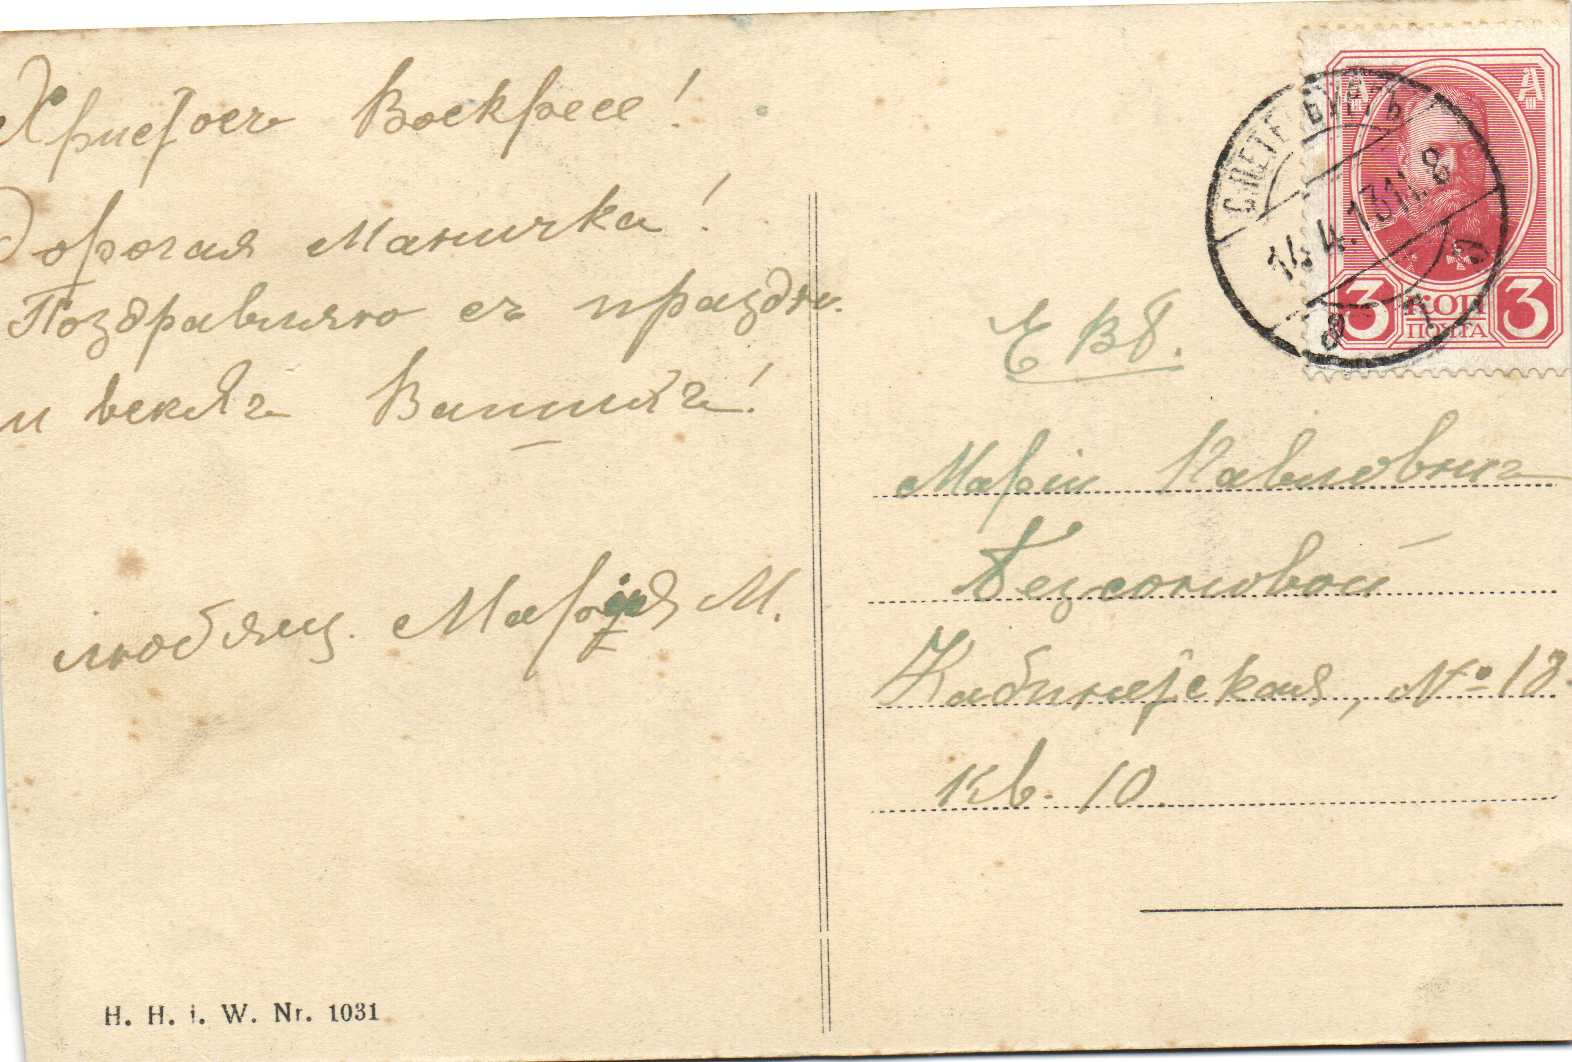 Христосъ Воскресе!
Дорогая Маничка!
Поздравляю съ праздн.
и всѣхъ Вашихъ!
любящ. Марія М.
Н. Н. i. W. Nr. 1031
С.ПЕТЕРБУРГЪ
14.4.13
8
3 КОП 3
ПОЧТА
Е В б.
Маріи Павловнѣ
Безсоновой
Кабинетская, № 18.
кв. 10.